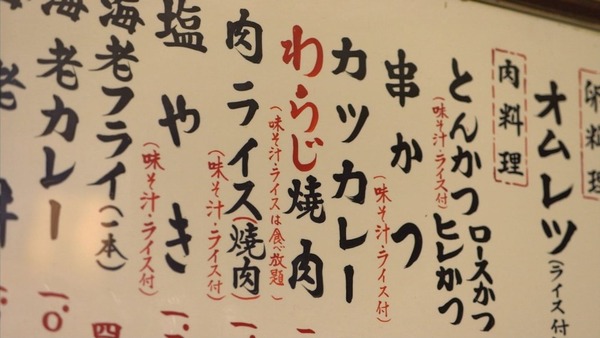 卵料理
オムレツ
(ライス付
肉料理
とんかつ ロースかつ ヒレかつ
(味そ汁・ライス付)
串かつ
(味そ汁・ライス付)
カツカレー
わらじ焼肉
(味そ汁・ライスは食べ放題)
肉ライス(焼肉)
(味そ汁・ライス付)
塩やき
(味そ汁・ライス付)
海老フライ(一本)
四
海老カレー
一.〇
老
丼